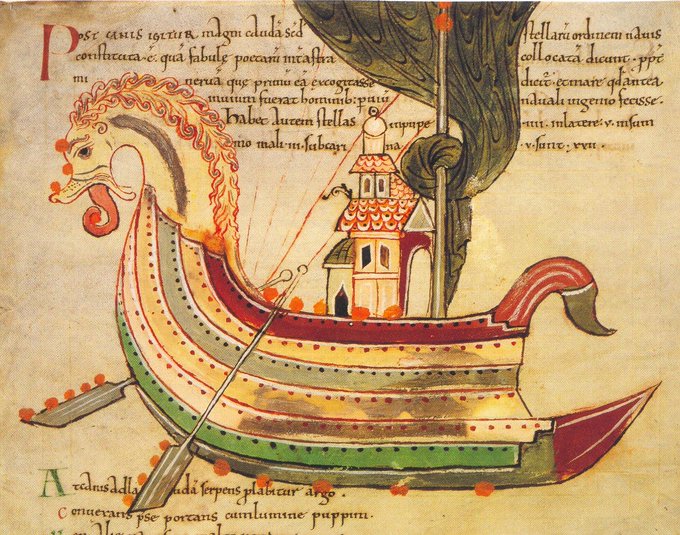 Post canis igitur magni caudā sed stellarū ordinem nauis
constituta ē. quā fabulę poetarū int astra collocatā dicunt. ppt
mi nerua quę primū eā excogitasse dicit. et mare qd antea
inuium fuerat hominib; nauali ingenio fecisse.
Habet autem stellas inpupe .iiii. inlatere .v. insum
mo mali .iii. subcari na .v. sunt .xxii.
caudā serpens plabitur argo.
Conuersans pse portans cumlumine puppim.